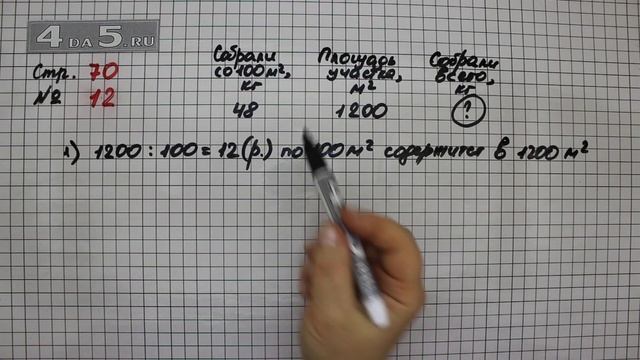 4DA5.RU
Стр. 70
№ 12
Собрали со 100 м², кг
Площадь участка, м²
Собрали всего, кг
48 1200 ?
1) 1200 : 100 = 12 (р.) по 100 м² содержится в 1200 м²